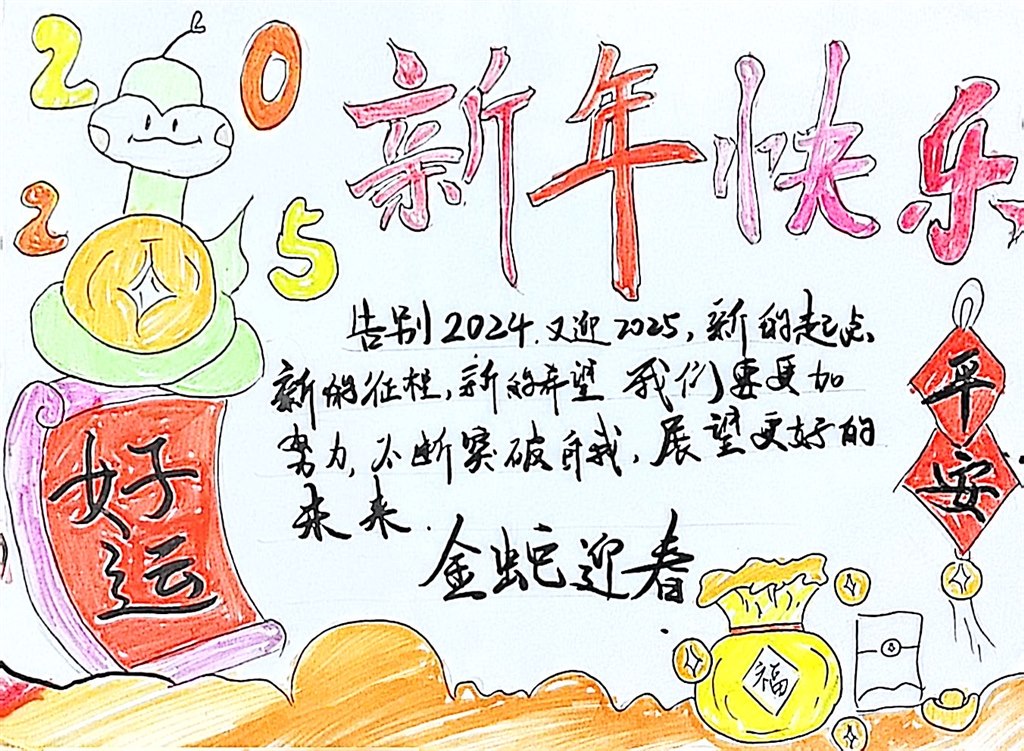 2025
新年快乐
告别2024.又迎2025,新的起点、
新的征程,新的希望 我们要更加
努力,不断突破自我,展望更好的
未来.
金蛇迎春
好运
平安
福